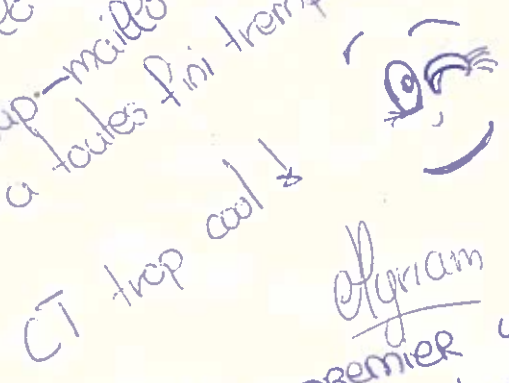 up-maillo
a toutes fini tremp
CT trop cool !
Myriam
PREMIER